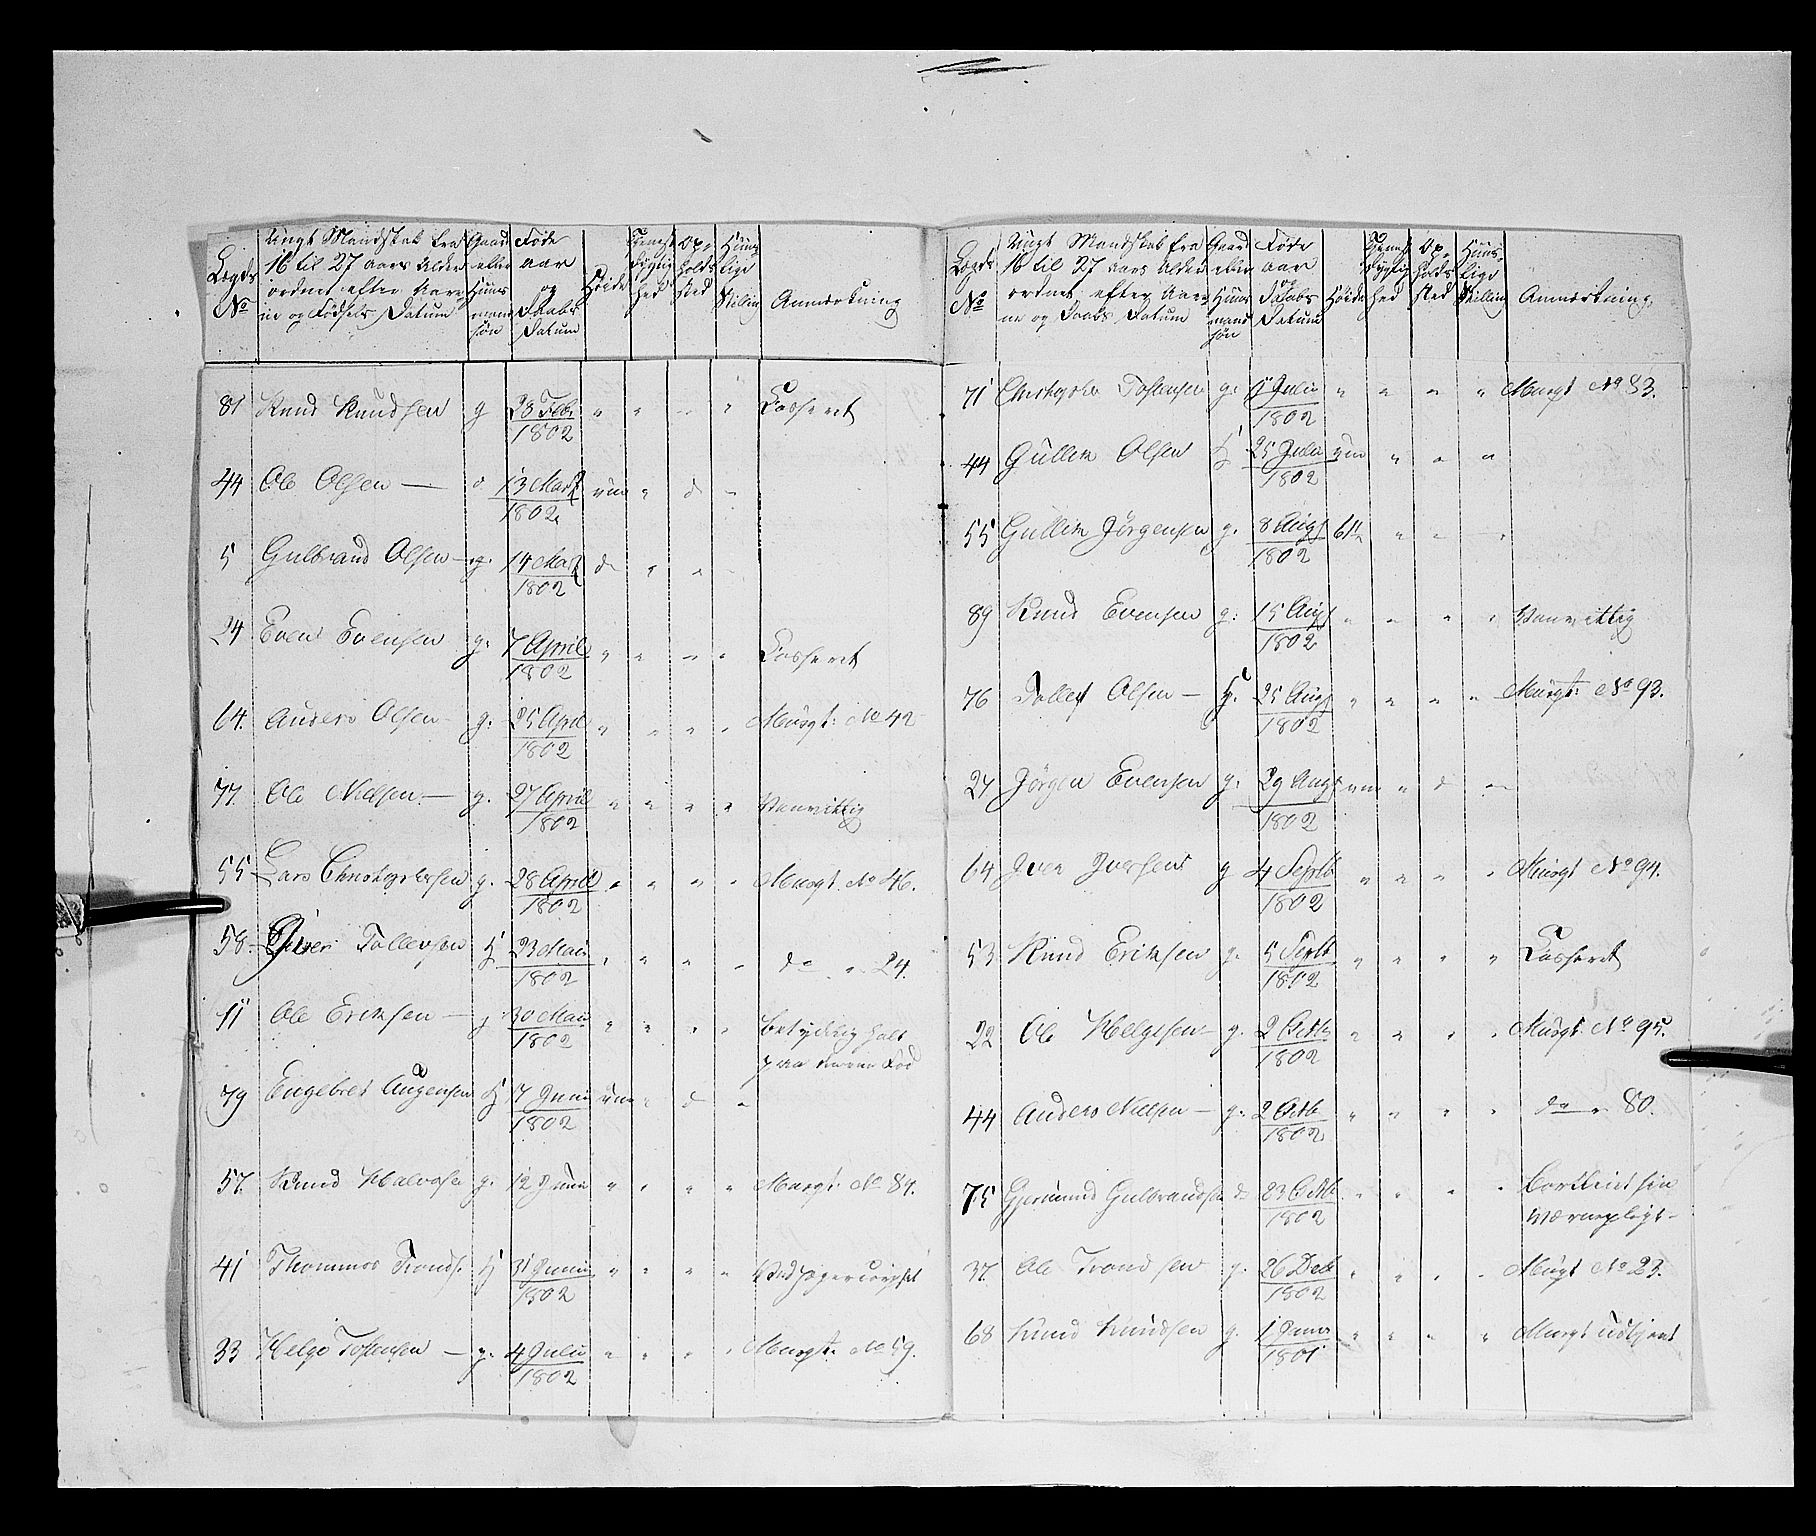 Legds No | Ungt Mandskab fra 16 til 27 aars Alder ordnet efter Aarene og Fødsels Datum | Gaard eller Huusmands søn | Føde aar og Daabs Datum | Høide | Tieneste dygtighed | Opholds sted | Huuslige Stilling | Anmærkning
81 Knud Knudsen g 23 Febr 1802 " " " " Casseret
44 Ole Olsen — 13 Marts 1802 um " do "
5 Gulbrand Olsen g. 14 Marts 1802 do " " "
24 Even Evensen g. 7 April 1802 " " " " Casseret
64. Anders Olsen g. 25 April 1802 " " " " Musqt: No 42
77. Ole Nielsen — g. 27 April 1802 " " " " Vanvittig
55 Lars Christophersen g. 28 April 1802 " " " " Musqt. No 46.
58 Iver Tollevsen H 23 Mai 1802 " " " " do " 24.
11 Ole Eriksen — g 30 Mai 1802 " " " " betydelig halt
paa venne Fod
79 Engebret Augensen H 7 Juni 1802 um " do "
57. Knud Halvorsen g. 12 Juni " " " " Musqt No 87.
41 Thommas Tronds. H 31 Juni 1802 " " " " Ved Jægercorpset
33 Helge Tostensen — g. 4 Julii 1802 " " " " Musqt: No 59.
Legds No | Ungt Mandskab fra 16 til 27 aars Alder ordnet efter Aarene og Daabs Datum | Gaard eller Huusmand søn | Føde aar og Daabs Datum | Høide | Tieneste dygtighed | Opholds sted | Huuslige Stilling | Anmærkning
71 Christopher Tostensen g. Julii 1802 " " " " Musqt No 83.
44 Gullik Olsen H 25 Julii 1802 um " " "
55 Gullik Jørgensen g. 8 Augs 1802 61 " " "
89 Knud Evensen g: 15 Augs 1802 " " " " Vanvittig
76 Tollef Olsen — H. 25 Augs 1802 " " " " Musqt: No 93.
27 Jørgen Evensen g. 29 Augs 1802 um " do "
64 Iver Iversen g 4 Septb 1802 " " " " Musqt No 94.
53 Knud Eriksen g. 5 Septb 1802 " " " " Casseret
22 Ole Helgesen — g. 2 Octb 1802 " " " " Musqt: No 95.
44 Anders Nielsen — g. 2 Octb 1802 " " " " do " 80.
75 Gjermund Gulbrandsen do 23 Octb 1802 " " " " bortleiet sin
Værnepligt —
37 Ole Trondsen g. 26 Decb 1802 " " " " Musqt No 23.
68 Knud Knudsen g. 1 Janr 1801 " " " " Musqt udtjent